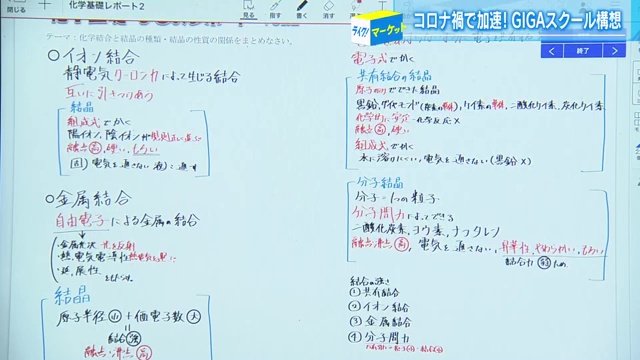 閉じる
化学基礎レポート2
コロナ禍で加速!GIGAスクール構想
ライク!マーケット
終了
テーマ:化学結合と結晶の種類・結晶の性質の関係をまとめなさい。
○イオン結合
静電気クーロン力によって生じる結合
互いに引きつけあう
結晶
組成式でかく
陽イオン、陰イオンが規則正しく並ぶ
融点高、硬い、もろい
固 電気を通さない 液
○金属結合
自由電子による金属の結合
・金属光沢 光を反射
・熱、電気伝導性
・延、展性
結晶
原子半径小+価電子数大
結合強
融点・沸点高
電子式でかく
共有結合の結晶
原子のみでできた結晶
黒鉛、ダイヤモンド(炭素の単体)、ケイ素の単体、二酸化ケイ素、炭化ケイ素
化学的に安定→化学反応×
融点高、硬い
組成式でかく
水に溶けにくい、電気を通さない(黒鉛×)
分子結晶
分子=1つの粒子
分子間力によってできる
二酸化炭素、ヨウ素、ナフタレン
電気を通さない、昇華性、やわらかい、もろい
結合力弱ため
結合の強さ
①共有結合
②イオン結合
③金属結合
④分子間力